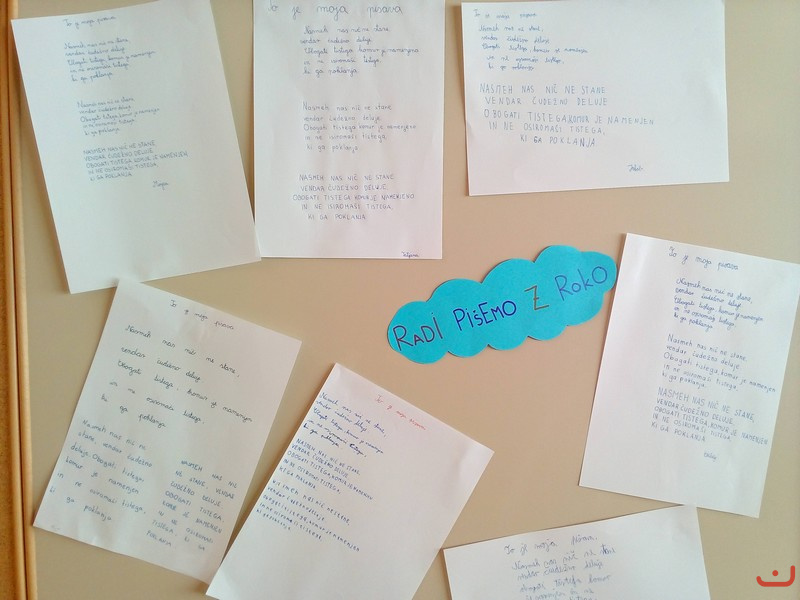 To je moja pisava
Nasmeh nas nič ne stane,
vendar čudežno deluje.
Obogati tistega, komur je namenjen
in ne osiromaši tistega,
ki ga poklanja.
Nasmeh nas nič ne stane,
vendar čudežno deluje.
Obogati tistega, komur je namenjen
in ne osiromaši tistega,
ki ga poklanja.
NASMEH NAS NIČ NE STANE,
VENDAR ČUDEŽNO DELUJE
OBOGATI TISTEGA, KOMUR JE NAMENJEN
IN NE OSIROMAŠI TISTEGA
KI GA POKLANJA
To je moja pisava
Nasmeh nas nič ne stane
vendar čudežno deluje
Obogati tistega komur je namenjeno
in ne osiromaši tistega
ki ga poklanja.
Nasmeh nas nič ne stane
vendar čudežno deluje.
Obogati tistega komur je namenjen
in ne osiromaši tistega
ki ga poklanja.
NASMEH NAS NIČ NE STANE
VENDAR ČUDEŽNO DELUJE
OBOGATI TISTEGA KOMUR JE NAMENJENO
IN NE OSIROMAŠI TISTEGA,
KI GA POKLANJA
To je moja pisava
Nasmeh nas nič ne stane,
vendar čudežno deluje
Obogati tistega, komur je namenjen
in ne osiromaši tistega,
ki ga poklanja.
NASMEH NAS NIČ NE STANE
VENDAR ČUDEŽNO DELUJE
OBOGATI TISTEGA, KOMUR JE NAMENJEN
IN NE OSIROMAŠI TISTEGA,
KI GA POKLANJA
RADI PIŠEMO Z ROKO
To je moja pisava
Nasmeh nas nič ne stane,
vendar čudežno deluje
Obogati tistega, komur je namenjen
in ne osiromaši tistega,
ki ga poklanja.
Nasmeh nas nič ne stane
vendar čudežno deluje
Obogati tistega, komur je namenjen
in ne osiromaši tistega,
ki ga poklanja
NASMEH NAS NIČ NE STANE,
VENDAR ČUDEŽNO DELUJE,
OBOGATI TISTEGA, KOMUR JE NAMENJEN
IN NE OSIROMAŠI TISTEGA
KI GA POKLANJA
To je moja pisava
Nasmeh nas nič ne stane,
vendar čudežno deluje
Obogati tistega, komur je namenjen
in ne osiromaši tistega,
ki ga poklanja
Nasmeh nas nič ne
stane, vendar čudežno
deluje Obogati tistega,
komur je namenjen
in ne osiromaši tistega,
ki ga poklanja
NASMEH NAS NIČ
NE STANE, VENDAR
ČUDEŽNO DELUJE
OBOGATI TISTEGA
KOMUR JE NAMENJEN
IN NE OSIROMAŠI
TISTEGA, KI GA
POKLANJA
To je moja pisava
Nasmeh nas nič ne stane,
vendar čudežno deluje
Obogati tistega, komur je namenjen
in ne osiromaši tistega,
ki ga poklanja.
NASMEH NAS NIČ NE STANE,
VENDAR ČUDEŽNO DELUJE
OBOGATI TISTEGA, KOMUR JE NAMENJEN
IN NE OSIROMAŠI TISTEGA,
To je moja pisava
Nasmeh nas nič ne stane
vendar čudežno deluje
obogati tistega komur
je namenjen in ne